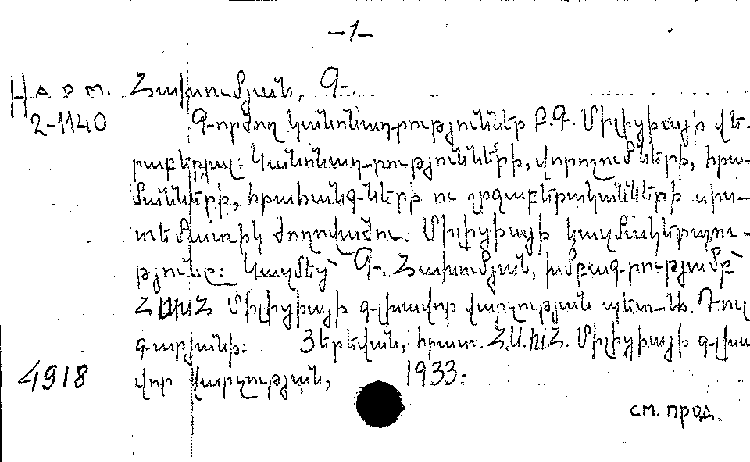 -1-
Հախումյան, Գ.
2-1140 Գործող կանոնադրություններ Բ.Գ. Միլիցիայի վե-
րաբերյալ: Կանոնադրությունների, վորոշումների, հրա-
մանների, հրահանգների ու շրջաբերականների սիս-
տեմատիկ ժողովածու. Միլիցիայի կազմակերպու-
թյունը: Կազմեց՝ Գ. Հախումյան, խմբագրությամբ՝
ՀՍԽՀ Միլիցիայի գլխավոր վարչության պետ
գարյանի: Յերևան, հրատ. Հ.Ս.Խ.Հ. Միլիցիայի գլխա
4918 վոր վարչության, 1933:
см. прод.